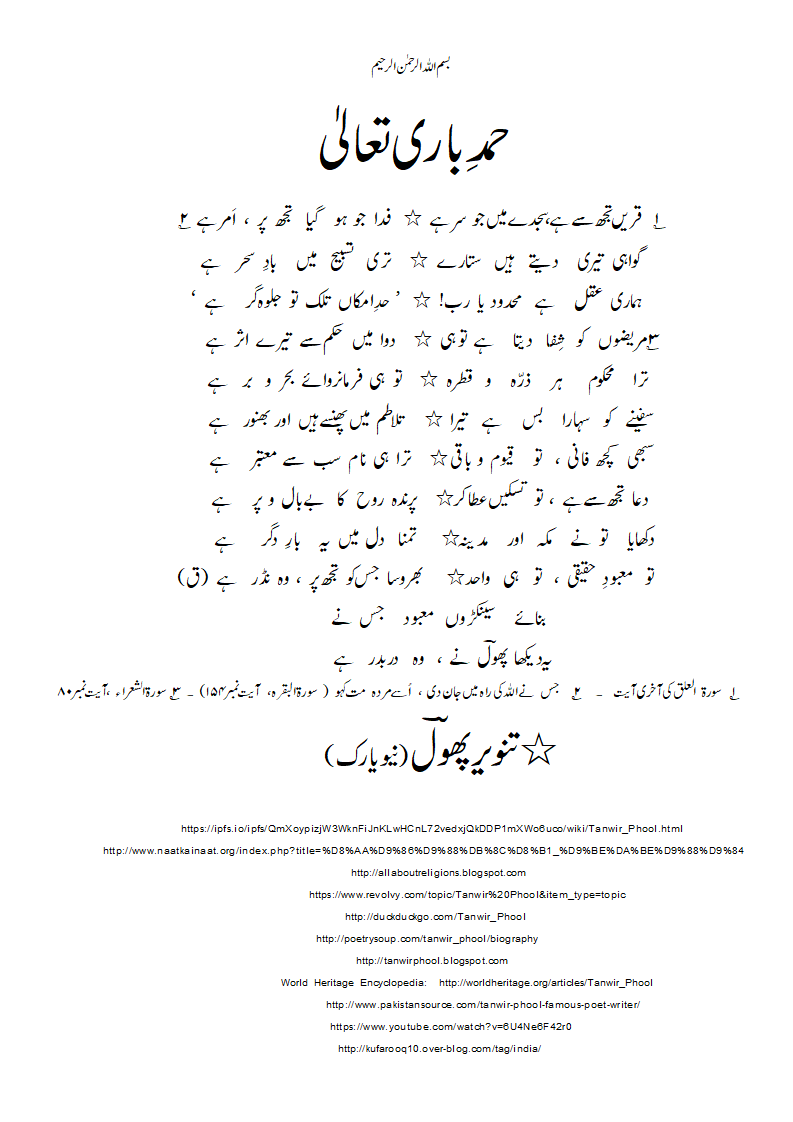 بسم اللہ الرحمٰن الرحیم
حمدِ باری تعالیٰ
۱؎ قریں تجھ سے ہے،سجدے میں جو سر ہے ☆ فدا جو ہو گیا تجھ پر ، اَمر ہے ۲؎
گواہی تیری دیتے ہیں ستارے ☆ تری تسبیح میں بادِ سحر ہے
ہماری عقل ہے محدود یا رب! ☆ ’ حدِامکاں تلک تو جلوہ گر ہے ‘
۳؎مریضوں کو شِفا دیتا ہے توہی ☆ دوا میں حکم سے تیرے اثر ہے
ترا محکوم ہر ذرّہ و قطرہ ☆ تو ہی فرمانروائے بحر و بر ہے
سفینے کو سہارا بس ہے تیرا ☆ تلاطم میں پھنسے ہیں اور بھنور ہے
سبھی کچھ فانی ، تو قیوم و باقی☆ ترا ہی نام سب سے معتبر ہے
دعا تجھ سے ہے ، تو تسکیں عطا کر☆ پرندہ روح کا بے بال و پر ہے
دکھایا تو نے مکہ اور مدینہ☆ تمنا دل میں یہ بارِ دگر ہے
تو معبودِ حقیقی ، تو ہی واحد☆ بھروسا جس کو تجھ پر ، وہ نڈر ہے (ق)
بنائے سینکڑوں معبود جس نے
یہ دیکھا پھولؔ نے ، وہ دربدر ہے
۱؎ سورۃ العلق کی آخری آیت ۔ ۲؎ جس نے اللہ کی راہ میں جان دی ، اُسے مردہ مت کہو ( سورۃ البقرہ، آیت نمبر۱۵۴) ۔ ۳؎ سورۃ الشعراء ،آیت نمبر۸۰
☆ تنویر پھولؔ (نیویارک)
https://ipfs.io/ipfs/QmXoypizjW3WknFiJnKLwHCnL72vedxjQkDDP1mXWo6uco/wiki/Tanwir_Phool.html
http://www.naatkainaat.org/index.php?title=%D8%AA%D9%86%D9%88%DB%8C%D8%B1_%D9%BE%DA%BE%D9%88%D9%84
http://allaboutreligions.blogspot.com
https://www.revolvy.com/topic/Tanwir%20Phool&item_type=topic
http://duckduckgo.com/Tanwir_Phool
http://poetrysoup.com/tanwir_phool/biography
http://tanwirphool.blogspot.com
World Heritage Encyclopedia: http://worldheritage.org/articles/Tanwir_Phool
http://www.pakistansource.com/tanwir-phool-famous-poet-writer/
https://www.youtube.com/watch?v=6U4Ne6F42r0
http://kufarooq10.over-blog.com/tag/india/